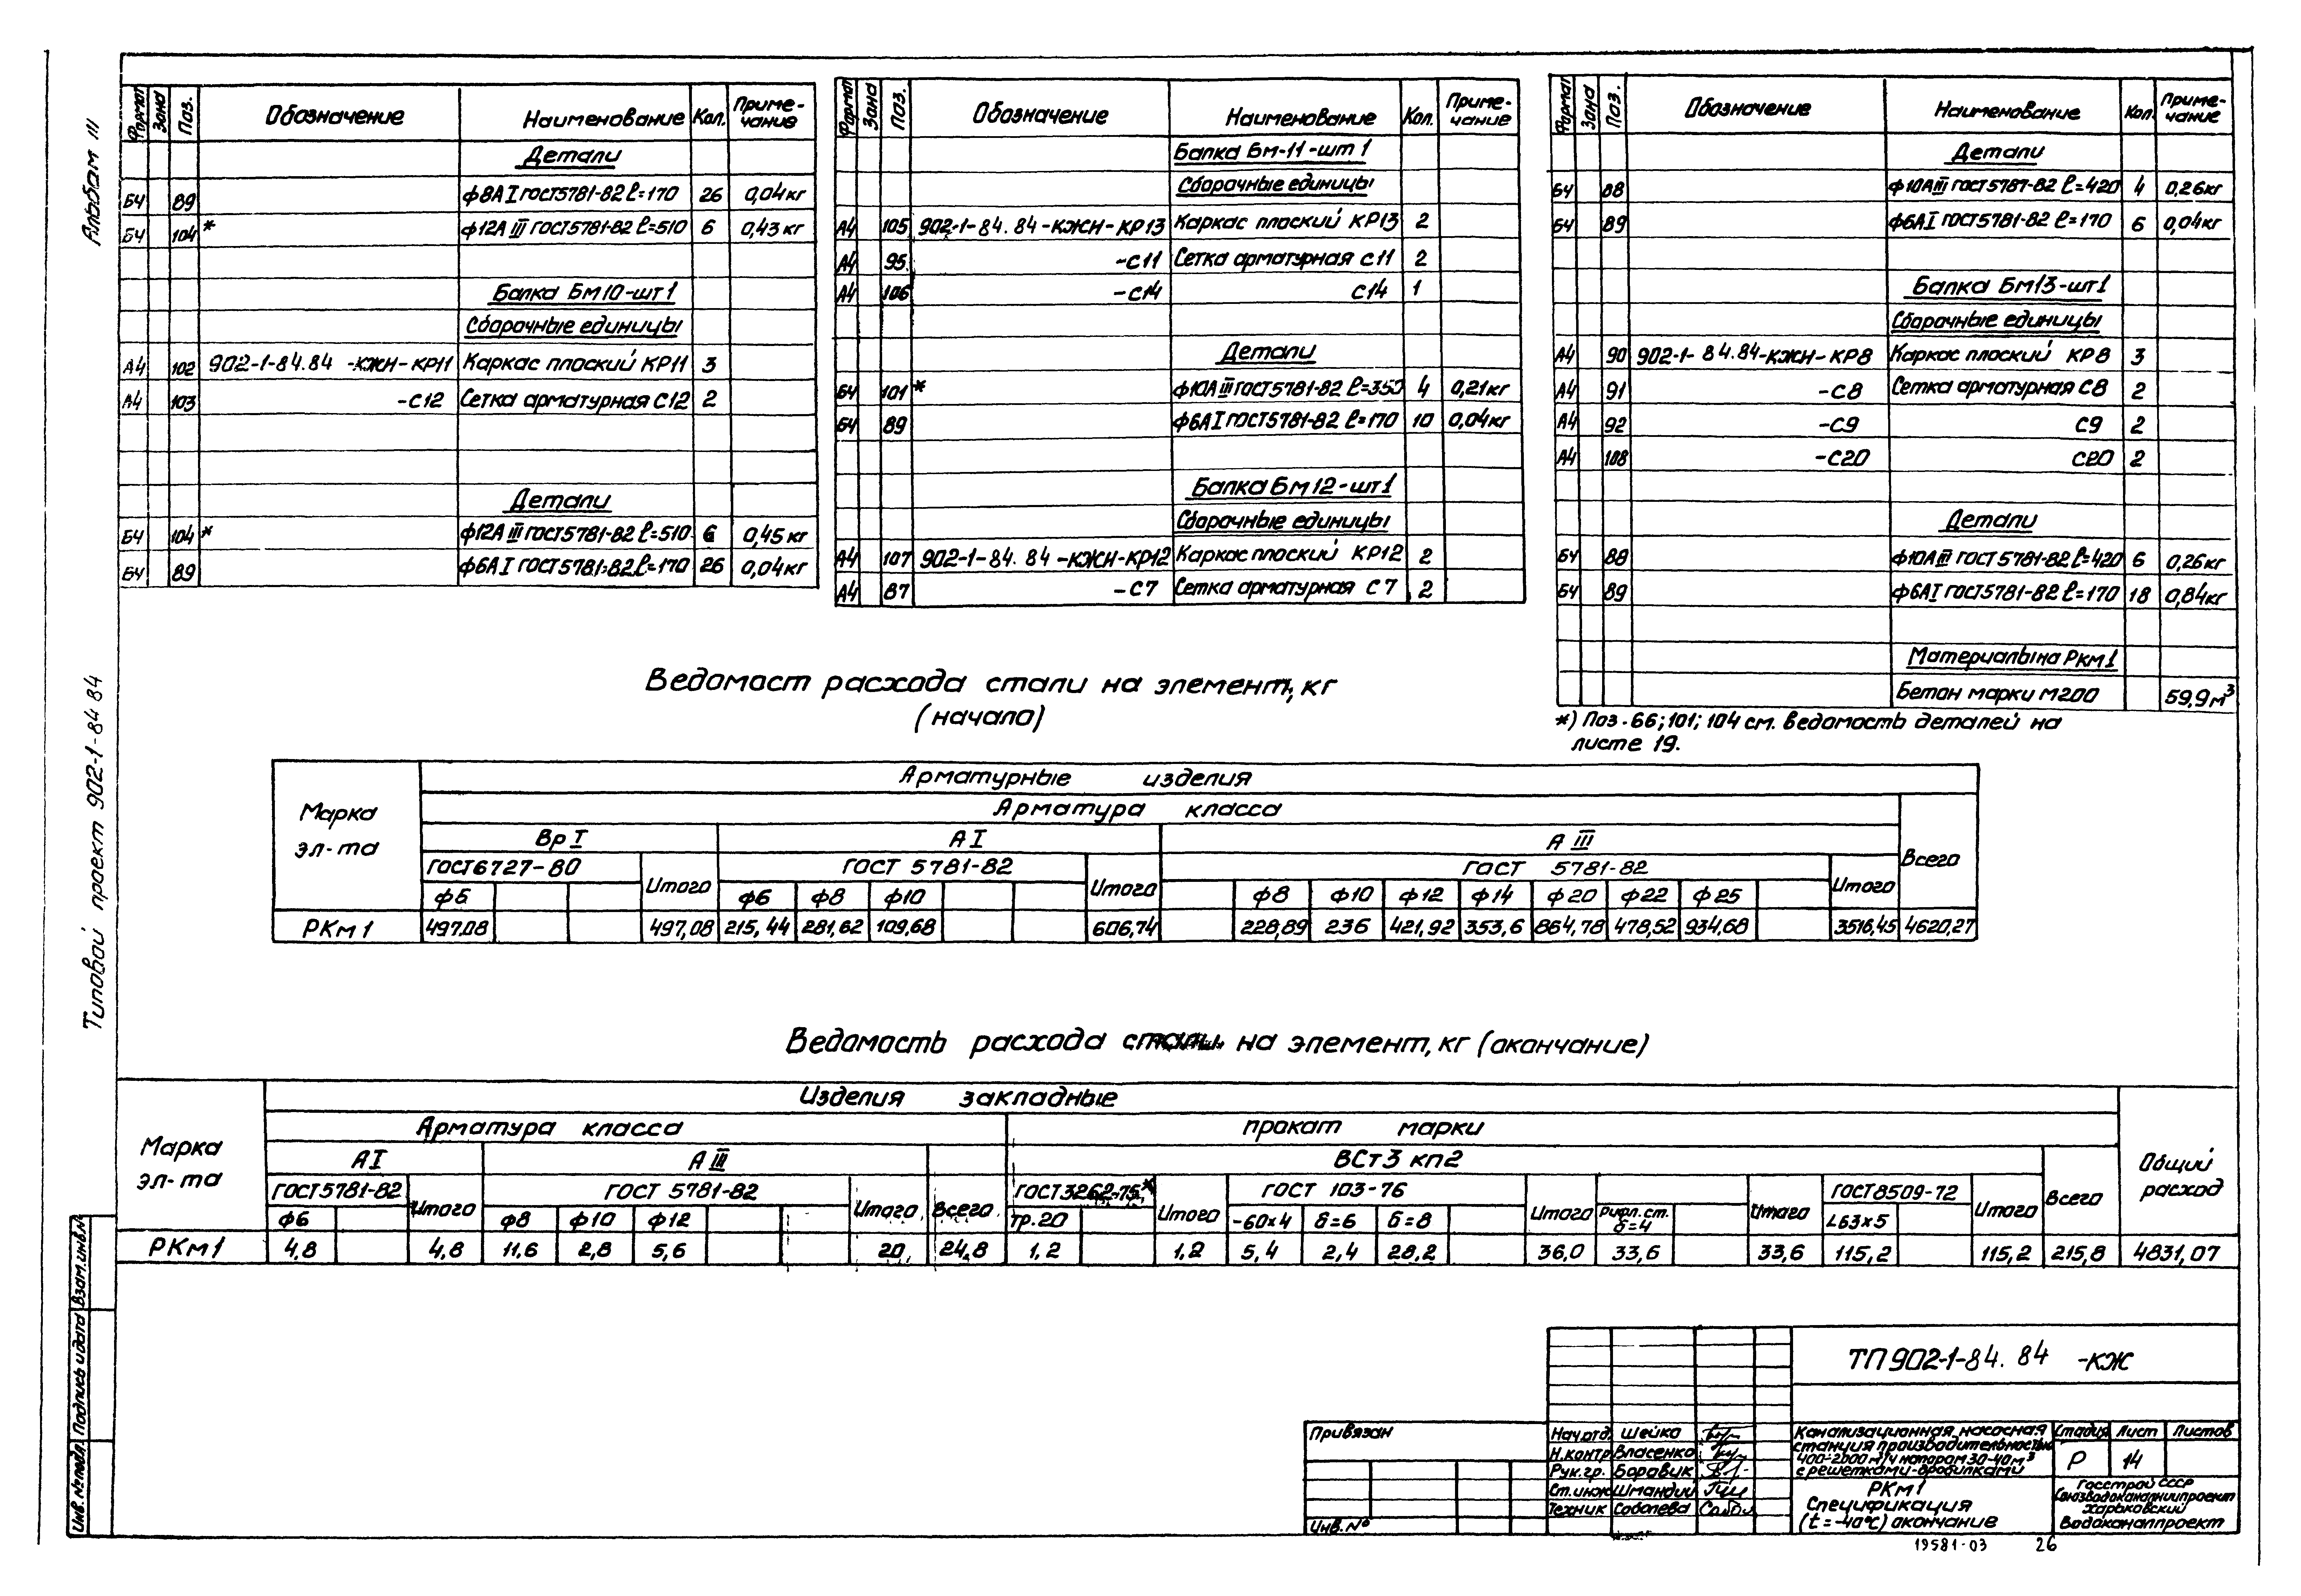 Альбом III
Типовой проект 902-1-84 84
Формат Зона Поз. Обозначение Наименование Кол. Примечание
Детали
БЧ 89 ф8АI ГОСТ5781-82 ℓ=170 26 0,04кг
БЧ 104* ф12А III ГОСТ5781-82 ℓ=510 6 0,43кг
Балка Бм10-шт1
Сборочные единицы
А4 102 902-1-84.84 -КЖН-КР11 Каркас плоский КР11 3
А4 103 -С12 Сетка арматурная С12 2
Детали
БЧ 104* ф12А III ГОСТ5781-82 ℓ=510 6 0,45кг
БЧ 89 ф6АI ГОСТ5781-82 ℓ=170 26 0,04кг
Формат Зона Поз. Обозначение Наименование Кол. Примечание
Балка Бм-11-шт 1
Сборочные единицы
А4 105 902-1-84.84-КЖН-КР13 Каркас плоский КР13 2
А4 95 -С11 Сетка арматурная С11 2
А4 106 -С14 С14 1
Детали
БЧ 101* ф10А III ГОСТ5781-82 ℓ=350 4 0,21кг
БЧ 89 ф6АI ГОСТ5781-82 ℓ=170 10 0,04кг
Балка Бм 12-шт1
Сборочные единицы
А4 107 902-1-84.84-КЖН-КР12 Каркас плоский КР12 2
А4 87 -С7 Сетка арматурная С7 2
Формат Зона Поз. Обозначение Наименование Кол. Примечание
Детали
БЧ 88 ф10А III ГОСТ5781-82 ℓ=420 4 0,26кг
БЧ 89 ф6АI ГОСТ5781-82 ℓ=170 6 0,04кг
Балка Бм13-шт1
Сборочные единицы
А4 90 902-1-84.84-КЖН-КР8 Каркас плоский КР8 3
А4 91 -С8 Сетка арматурная С8 2
А4 92 -С9 С9 2
А4 108 -С20 С20 2
Детали
БЧ 88 ф10А III ГОСТ5781-82 ℓ=420 6 0,26кг
БЧ 89 ф6АI ГОСТ5781-82 ℓ=170 18 0,84кг
Материалы на РКм1
Бетон марки М200 59,9м³
*) Поз.66;101;104 см. ведомость деталей на
листе 19.
Ведомаст расхода стали на элемент, кг
(начало)
Марка эл-та
Арматурные изделия
Арматура класса
Всего
Вр I А I А III
ГОСТ6727-80 Итого ГОСТ 5781-82 Итого ГОСТ 5781-82 Итого
ф5 ф6 ф8 ф10 ф8 ф10 ф12 ф14 ф20 ф22 ф25
РКм1 497.08 497,08 215,44 281,62 109,68 606,74 228,89 236 421,92 353,6 864,78 478,52 934,68 3516,45 4620,27
Ведомость расхода стали на элемент, кг (окончание)
Марка эл-та
Изделия закладные
Общий расход
Арматура класса прокат марки
АI А III Всего ВСт3 кп2 Всего
ГОСТ5781-82 Итого ГОСТ 5781-82 Итого ГОСТ3262-75* Итого ГОСТ 103-76 Итого Итого ГОСТ8509-72 Итого
ф6 ф8 ф10 ф12 тр.20 -60х4 δ=6 δ=8 Рифл.ст. δ=4 L63х5
РКм1 4,8 4,8 11,6 2,8 5,6 20, 24,8 1,2 1,2 5,4 2,4 28,2 36,0 33,6 33,6 115,2 115,2 215,8 4831,07
Инв.№подл. Подпись и дата Взам.инв.№
Привязан
Инв.№
ТП902-1-84.84 -КЖ
Нач.отд. Шейко
Н.контр Власенко
Рук.гр. Боровик
Ст.инж Шмандий
Техник Соболева
Канализационная насосная
станция производительностью
400-2000 м³/ч напором 30-40м
с решетками-дробилками
Стадия Лист Листов
Р 14
РКм1
Спецификация
(t=-40°С) окончание
Госстрой СССР
Союзводоканалниипроект
Харьковский
Водоканалпроект
19581-03 26